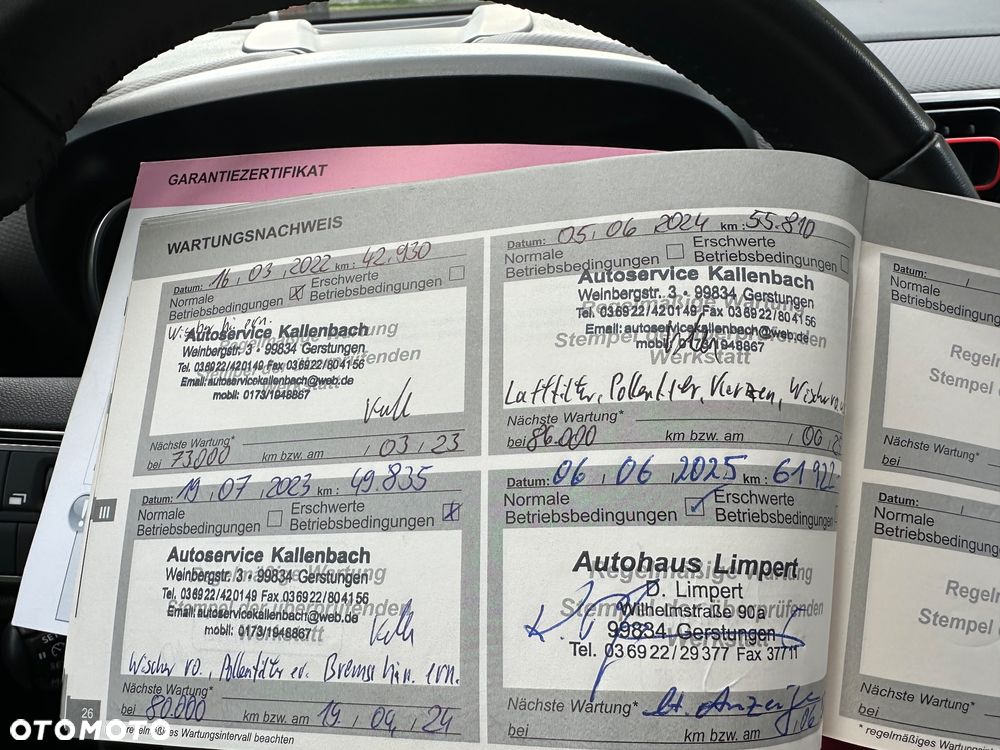 GARANTIEZERTIFIKAT
WARTUNGSNACHWEIS
Datum: 16, 03, 2022 km: 42.930
Normale Betriebsbedingungen ☒ Erschwerte Betriebsbedingungen ☐
Wischer hi. ern.
Autoservice Kallenbach
Weinbergstr. 3 - 99834 Gerstungen
Tel. 036922/420149 Fax 036922/804156
Email: autoservicekallenbach@web.de
mobil: 0173/1948867
Nächste Wartung*
bei 73000 km bzw. am , 03, 23
Datum: 19, 07, 2023 km: 49.835
Normale Betriebsbedingungen ☐ Erschwerte Betriebsbedingungen ☒
Autoservice Kallenbach
Weinbergstr. 3 - 99834 Gerstungen
Regelmäßige Wartung
Tel. 036922/420149 Fax 036922/804156
Stempel der überprüfenden
Email: autoservicekallenbach@web.de
Werkstatt
mobil: 0173/1948867
Wischer vo., Pollenfilter er. Brems hin. ern.
Nächste Wartung*
bei 80.000 km bzw. am 19. 04, 24
regelmäßiges Wartungsintervall beachten
26
III
Datum: 05, 06, 2024 km: 55.810
Normale Betriebsbedingungen ☐ Erschwerte Betriebsbedingungen ☐
Autoservice Kallenbach
Weinbergstr. 3 - 99834 Gerstungen
Regelmäßige Wartung
Tel. 036922/420149 Fax 036922/804156
Stempel der überprüfenden
Email: autoservicekallenbach@web.de
Werkstatt
mobil: 0173/1948867
Luftfilter, Pollenfilter, Kerzen, Wischer
Nächste Wartung*
bei 86.000 km bzw. am , 06,
Datum: 06, 06, 2025 km: 61922
Normale Betriebsbedingungen ☑ Erschwerte Betriebsbedingungen
Autohaus Limpert
Regelmäßige Wartung
D. Limpert
Wilhelmstraße 90a
99834 Gerstungen
Tel. 036922/29377 Fax 37711
Nächste Wartung* lt. Anzeige
bei
Datum:
Normale
Betriebsbedingungen
Stempel
Nächste Wartung*
bei
Datum:
Normale
Betriebsbedingungen
Stempel
Nächste Wartung*
bei
* regelmäßiges Wartungs
OTOMOTO